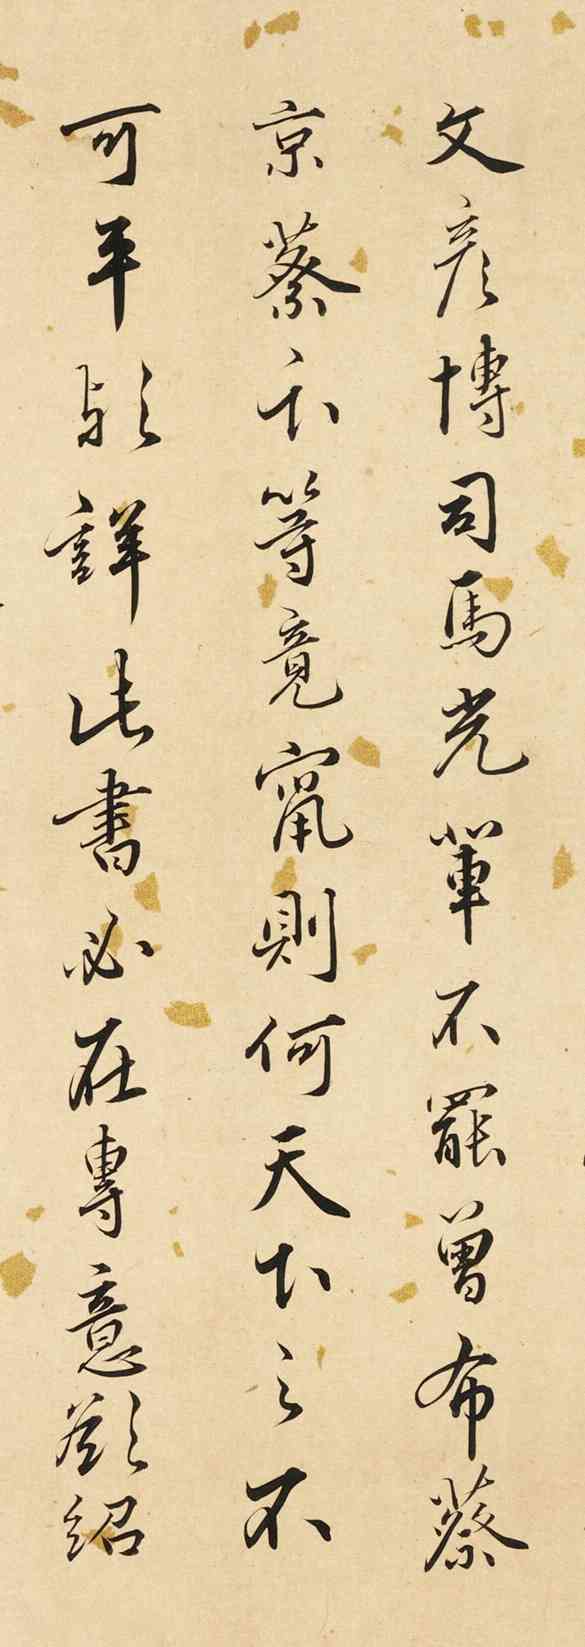 文彥博司馬光輩不罷曾布蔡
京蔡卞等竟竄則何天下之不
可平歟詳此書必在專意紹